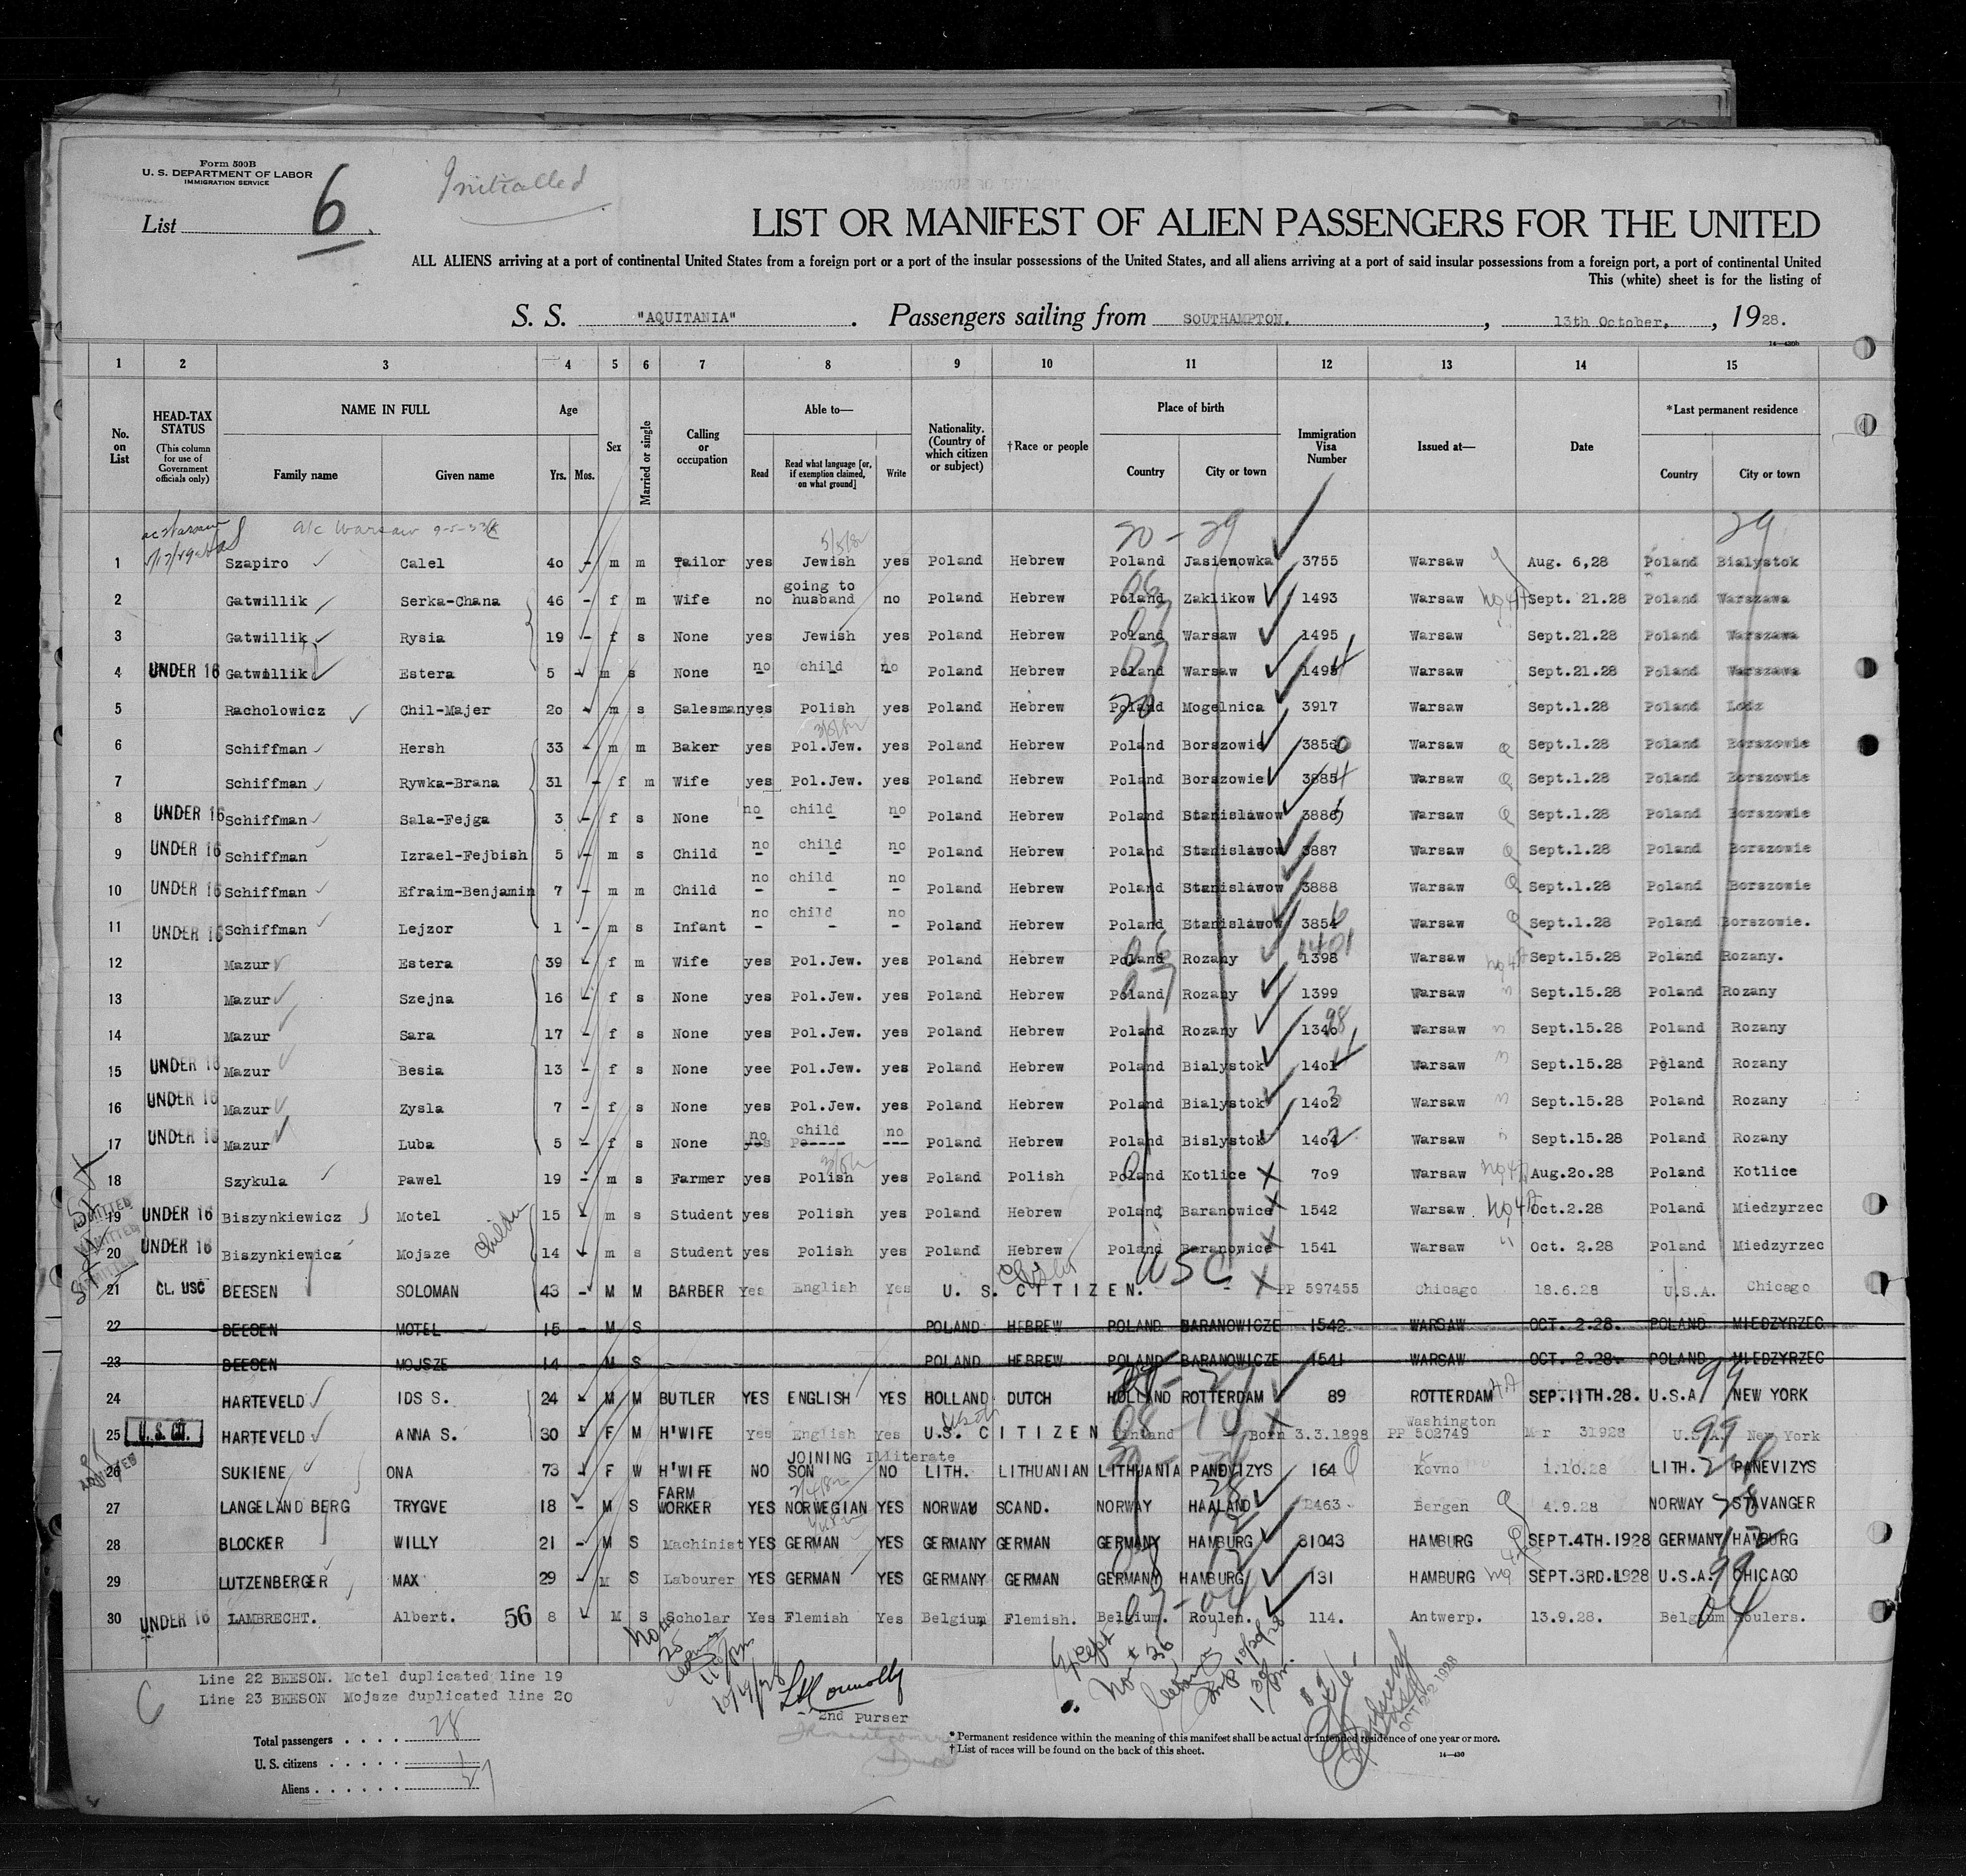 Form 500B
U. S. DEPARTMENT OF LABOR
IMMIGRATION SERVICE
Initialled
List 6
LIST OR MANIFEST OF ALIEN PASSENGERS FOR THE UNITED
ALL ALIENS arriving at a port of continental United States from a foreign port or a port of the insular possessions of the United States, and all aliens arriving at a port of said insular possessions from a foreign port, a port of continental United
This (white) sheet is for the listing of
S. S. "AQUITANIA". Passengers sailing from SOUTHAMPTON., 13th October, , 1928.
14—430b
1 2 3 4 5 6 7 8 9 10 11 12 13 14 15
No. on List
HEAD-TAX STATUS (This column for use of Government officials only)
NAME IN FULL Family name Given name
Age Yrs. Mos.
Sex
Married or single
Calling or occupation
Able to— Read Read what language [or, if exemption claimed, on what ground] Write
Nationality. (Country of which citizen or subject)
†Race or people
Place of birth Country City or town
Immigration Visa Number
Issued at—
Date
*Last permanent residence Country City or town
a/c Warsaw 20 - 29 29
1 Szapiro Calel 40 - m m Tailor yes Jewish yes Poland Hebrew Poland Jasienowka 3755 Warsaw Aug. 6,28 Poland Bialystok
2 Gatwillik Serka-Chana 46 - f m Wife no going to husband no Poland Hebrew Poland Zaklikow 1493 Warsaw Sept. 21.28 Poland Warszawa
3 Gatwillik Rysia 19 - f s None yes Jewish yes Poland Hebrew Poland Warsaw 1495 Warsaw Sept.21.28 Poland Warszawa
4 UNDER 16 Gatwillik Estera 5 - m s None no child no Poland Hebrew Poland Warsaw 1494 Warsaw Sept.21.28 Poland Warszawa
5 Racholowicz Chil-Majer 20 - m s Salesman yes Polish yes Poland Hebrew Poland Mogelnica 3917 Warsaw Sept.1.28 Poland Lodz
6 Schiffman Hersh 33 - m m Baker yes Pol.Jew. yes Poland Hebrew Poland Borszowie 3850 Warsaw Sept.1.28 Poland Borszowie
7 Schiffman Rywka-Brana 31 - f m Wife yes Pol.Jew. yes Poland Hebrew Poland Borszowie 3884 Warsaw Sept.1.28 Poland Borszowie
8 UNDER 16 Schiffman Sala-Fejga 3 - f s None no child no Poland Hebrew Poland Stanislawow 3885 Warsaw Sept.1.28 Poland Borszowie
9 UNDER 16 Schiffman Izrael-Fejbish 5 - m s Child no child no Poland Hebrew Poland Stanislawow 3887 Warsaw Sept.1.28 Poland Borszowie
10 UNDER 16 Schiffman Efraim-Benjamin 7 - m m Child no child no Poland Hebrew Poland Stanislawow 3888 Warsaw Sept.1.28 Poland Borszowie
11 UNDER 16 Schiffman Lejzor 1 - m s Infant no child no Poland Hebrew Poland Stanislawow 3856 Warsaw Sept.1.28 Poland Borszowie.
12 Mazur Estera 39 - f m Wife yes Pol.Jew. yes Poland Hebrew Poland Rozany 1401 1398 Warsaw Sept.15.28 Poland Rozany.
13 Mazur Szejna 16 - f s None yes Pol.Jew. yes Poland Hebrew Poland Rozany 1399 Warsaw Sept.15.28 Poland Rozany
14 Mazur Sara 17 - f s None yes Pol.Jew. yes Poland Hebrew Poland Rozany 1398 Warsaw Sept.15.28 Poland Rozany
15 UNDER 16 Mazur Besia 13 - f s None yee Pol.Jew. yes Poland Hebrew Poland Bialystok 1401 Warsaw Sept.15.28 Poland Rozany
16 UNDER 16 Mazur Zysla 7 - f s None yes Pol.Jew. yes Poland Hebrew Poland Bialystok 1403 Warsaw Sept.15.28 Poland Rozany
17 UNDER 16 Mazur Luba 5 - f s None no child no Poland Hebrew Poland Bislystok 1402 Warsaw Sept.15.28 Poland Rozany
18 Szykula Pawel 19 - m s Farmer yes Polish yes Poland Polish Poland Kotlice 709 Warsaw Aug.20.28 Poland Kotlice
19 UNDER 16 Biszynkiewicz Motel 15 - m s Student yes Polish yes Poland Hebrew Poland Baranowice 1542 Warsaw Oct.2.28 Poland Miedzyrzec
20 UNDER 16 Biszynkiewicz Mojsze children 14 - m s Student yes Polish yes Poland Hebrew Poland Baranowice 1541 Warsaw Oct. 2.28 Poland Miedzyrzec
21 CL. USC BEESEN SOLOMAN 43 - M M BARBER Yes English Yes U. S. CITIZEN. USC PP 597455 Chicago 18.6.28 U.S.A. Chicago
22 BEESEN MOTEL 15 - M S POLAND HEBREW POLAND BARANOWICZE 1542 WARSAW OCT. 2.28. POLAND MIEDZYRZEC
23 BEESEN MOJSZE 14 - M S POLAND HEBREW POLAND BARANOWICZE 1541 WARSAW OCT. 2.28. POLAND MIEDZYRZEC
24 HARTEVELD IDS S. 24 - M M BUTLER YES ENGLISH YES HOLLAND DUTCH HOLLAND ROTTERDAM 89 ROTTERDAM SEPT.11TH.28. U.S.A 99 NEW YORK
25 U.S. CIT. HARTEVELD ANNA S. 30 - F M H'WIFE Yes English Yes U.S. CITIZEN Born 3.3.1898 PP 502749 Washington Mar 31928 U.S.A. 99 New York
26 SUKIENE ONA 73 - F W H'WIFE NO JOINING SON Illiterate NO LITH. LITHUANIAN LITHUANIA PANEVIZYS 164 Kovno 1.10.28 LITH. PANEVIZYS
27 LANGELAND BERG TRYGVE 18 - M S FARM WORKER YES NORWEGIAN YES NORWAY SCAND. NORWAY HAALAND 2463 Bergen 4.9.28 NORWAY STAVANGER
28 BLOCKER WILLY 21 - M S Machinist YES GERMAN YES GERMANY GERMAN GERMANY HAMBURG 81043 HAMBURG SEPT.4TH.1928 GERMANY HAMBURG
29 LUTZENBERGER MAX 29 - M S Labourer YES GERMAN YES GERMANY GERMAN GERMANY HAMBURG 131 HAMBURG SEPT.3RD.1928 U.S.A. 99 CHICAGO
30 UNDER 16 LAMBRECHT. Albert. 56 8 M S Scholar Yes Flemish Yes Belgium, Flemish. Belgium. Roulen. 114. Antwerp. 13.9.28. Belgium Roulers.
Line 22 BEESON. Motel duplicated line 19
Line 23 BEESON Mojsze duplicated line 20
2nd Purser
Except No # 26
OCT 22 1928
Total passengers . . . . 28
U. S. citizens . . . . .
Aliens . . . . . .
* Permanent residence within the meaning of this manifest shall be actual or intended residence of one year or more.
† List of races will be found on the back of this sheet.
14—430